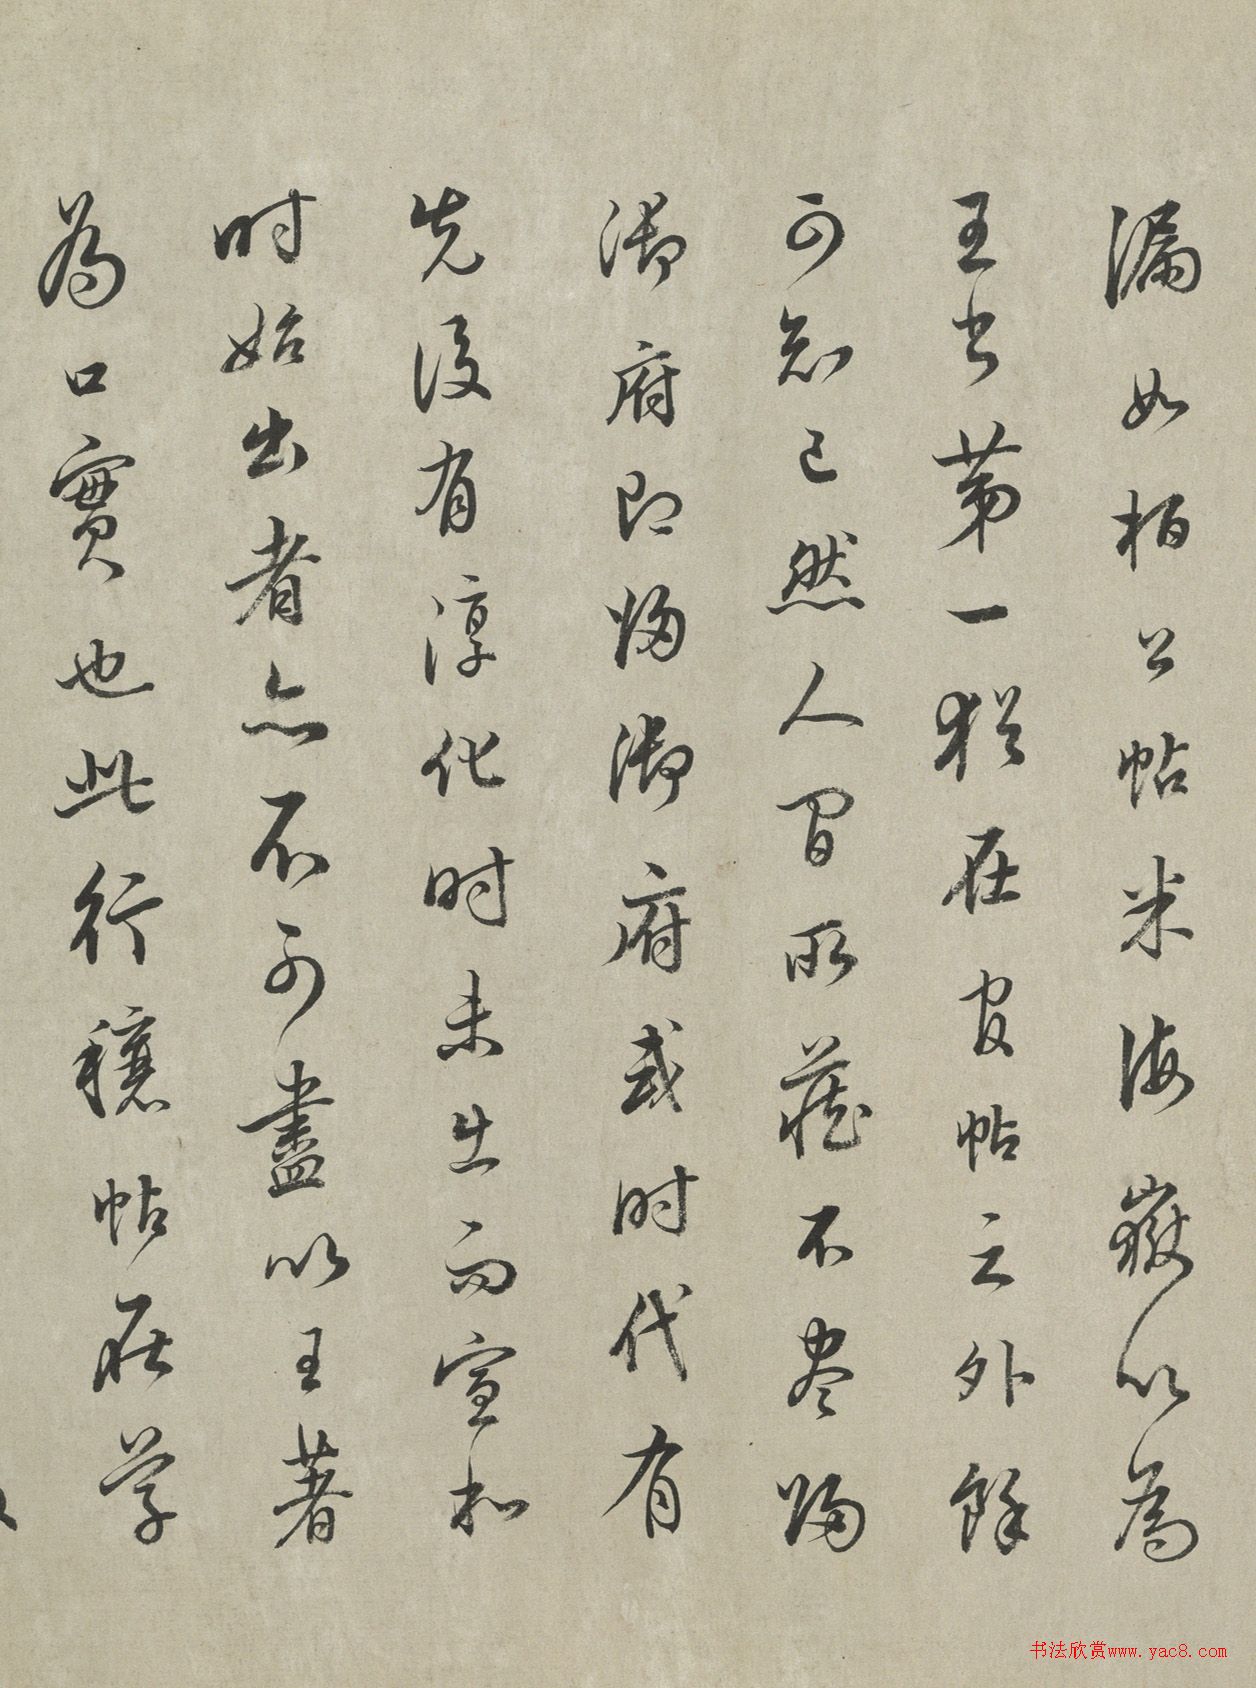 漏如柏公帖米海嶽以為
王书第一猶在官帖之外餘
可知已然人间所藏不尽歸
御府即归御府或时代有
先後有淳化时未出而宣和
时始出者亦不可盡以王著
為口實也此行穰帖在学
书法欣赏www.yac8.com